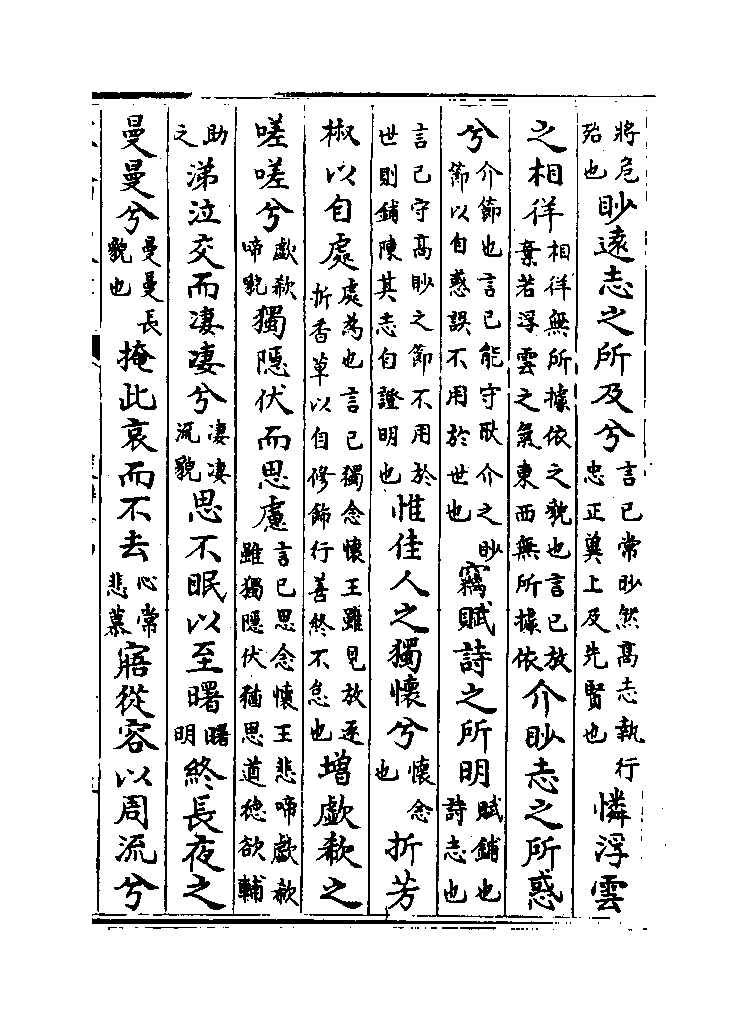 將危殆也眇遠志之所及兮言已常眇然髙志執行忠正冀上及先賢也憐浮雲
之相徉相徉無所據依之貌也言已放棄若浮雲之氣東西無所據依介眇志之所惑
兮介節也言已能守耿介之眇節以自惑誤不用於世也竊賦詩之所明賦鋪也詩志也
言已守髙眇之節不用於世則鋪陳其志自證明也惟佳人之獨懷兮懷念也折芳
椒以自處處為也言已獨念懷王雖見放逐折香草以自修飾行善終不怠也增歔欷之
嗟嗟兮歔欷啼貌獨隱伏而思慮言已思念懷王悲啼歔欷雖獨隱伏猶思道徳欲輔
助之涕泣交而凄凄兮凄凄流貌思不眠以至曙曙明終長夜之
曼曼兮曼曼長貌也掩此哀而不去心常悲慕寤從容以周流兮